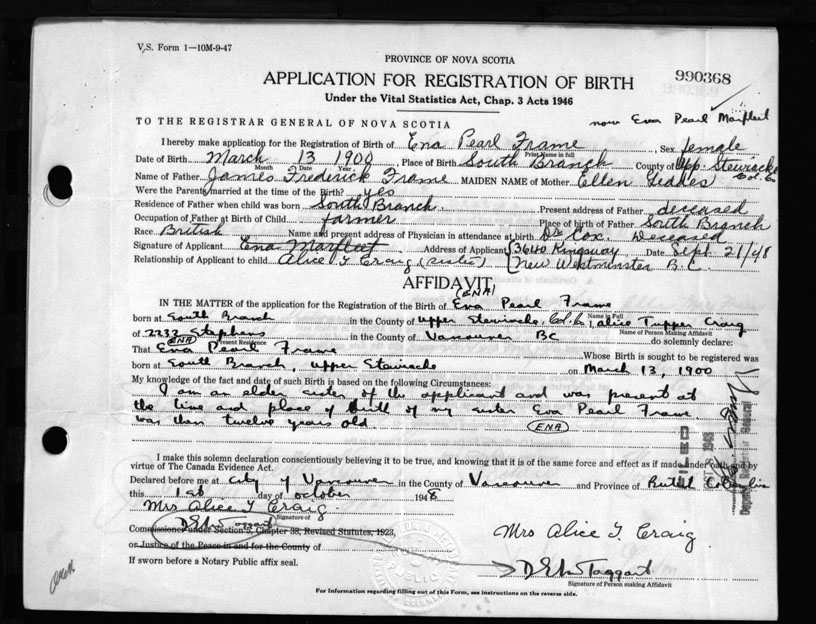 V.S. Form 1—10M-9-47
PROVINCE OF NOVA SCOTIA
990368
APPLICATION FOR REGISTRATION OF BIRTH
Under the Vital Statistics Act, Chap. 3 Acts 1946
now Ena Pearl Marfleet
TO THE REGISTRAR GENERAL OF NOVA SCOTIA
I hereby make application for the Registration of Birth of Ena Pearl Frame, Sex female
Print Name in full
Date of Birth March 13 1900, Place of Birth South Branch County of Upp. Stewiacke
Month Date Year
Col. Co
Name of Father James Frederick Frame MAIDEN NAME of Mother Ellen
Were the Parents married at the time of the Birth? yes
Residence of Father when child was born South Branch Present address of Father deceased
Occupation of Father at Birth of Child farmer Place of birth of Father South Branch
Race British Name and present address of Physician in attendance at birth Dr Cox. Deceased
Signature of Applicant Ena Marfleet Address of Applicant 3640 Kingsway Date Sept. 21/48
Relationship of Applicant to child Alice T Craig (sister) New Westminster B.C
AFFIDAVIT
(ENA)
IN THE MATTER of the application for the Registration of the Birth of Eva Pearl Frame
Name in Full
born at South Branch in the County of Upper Stewiacke, Col. Co I, Alice Tupper Craig
Name of Person Making Affidavit
of 2332 Stephens in the County of Vancouver BC do solemnly declare:
Present Residence
ENA
That Eva Pearl Frame Whose Birth is sought to be registered was
born at South Branch, Upper Stewiacke on March 13, 1900
My knowledge of the fact and date of such Birth is based on the following Circumstances:
I am an older sister of the applicant and was present at
the time and place of birth of my sister Eva Pearl Frame.
was then twelve years old. (ENA)
I make this solemn declaration conscientiously believing it to be true, and knowing that it is of the same force and effect as if made under oath and by
virtue of The Canada Evidence Act.
Declared before me at City of Vancouver in the County of Vancouver and Province of British Columbia
this 1st day of October 1948
Mrs Alice T. Craig.
Signature of
Commissioner under Section 5, Chapter 38, Revised Statutes, 1923,
or Justice of the Peace in and for the County of
Mrs Alice T. Craig.
If sworn before a Notary Public affix seal.
Signature of Person making Affidavit
For Information regarding filling out of this Form, see instructions on the reverse side.